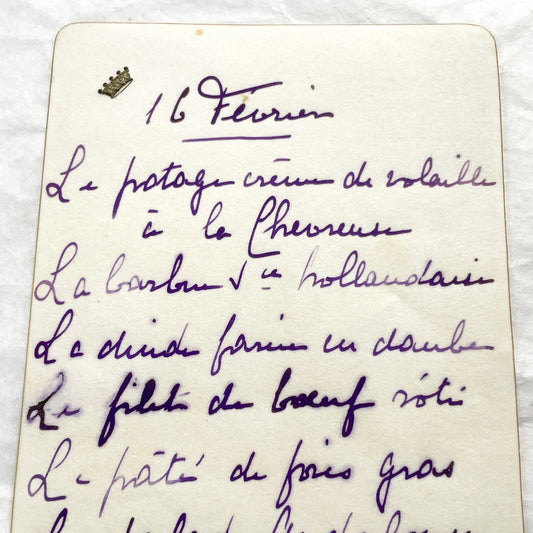 16 Février
Le potage crème de volaille
à la Chevreuse
La barbue sce hollandaise
La dinde farcie en daube
Le filet de bœuf rôti
Le pâté de foies gras